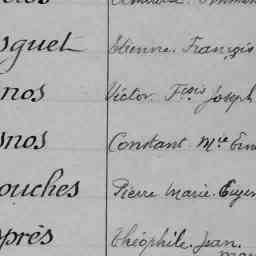 sguet Etienne. François
nos Victor. Fçois Joseph
snos Constant. Mie
ouches Pierre Marie. Eugen
sprès Théophile. Jean.